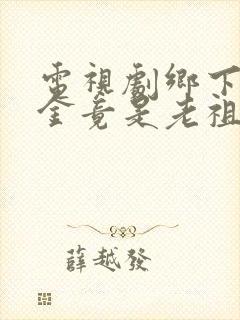 電視劇鄉下
全竟是老祖
薛越發